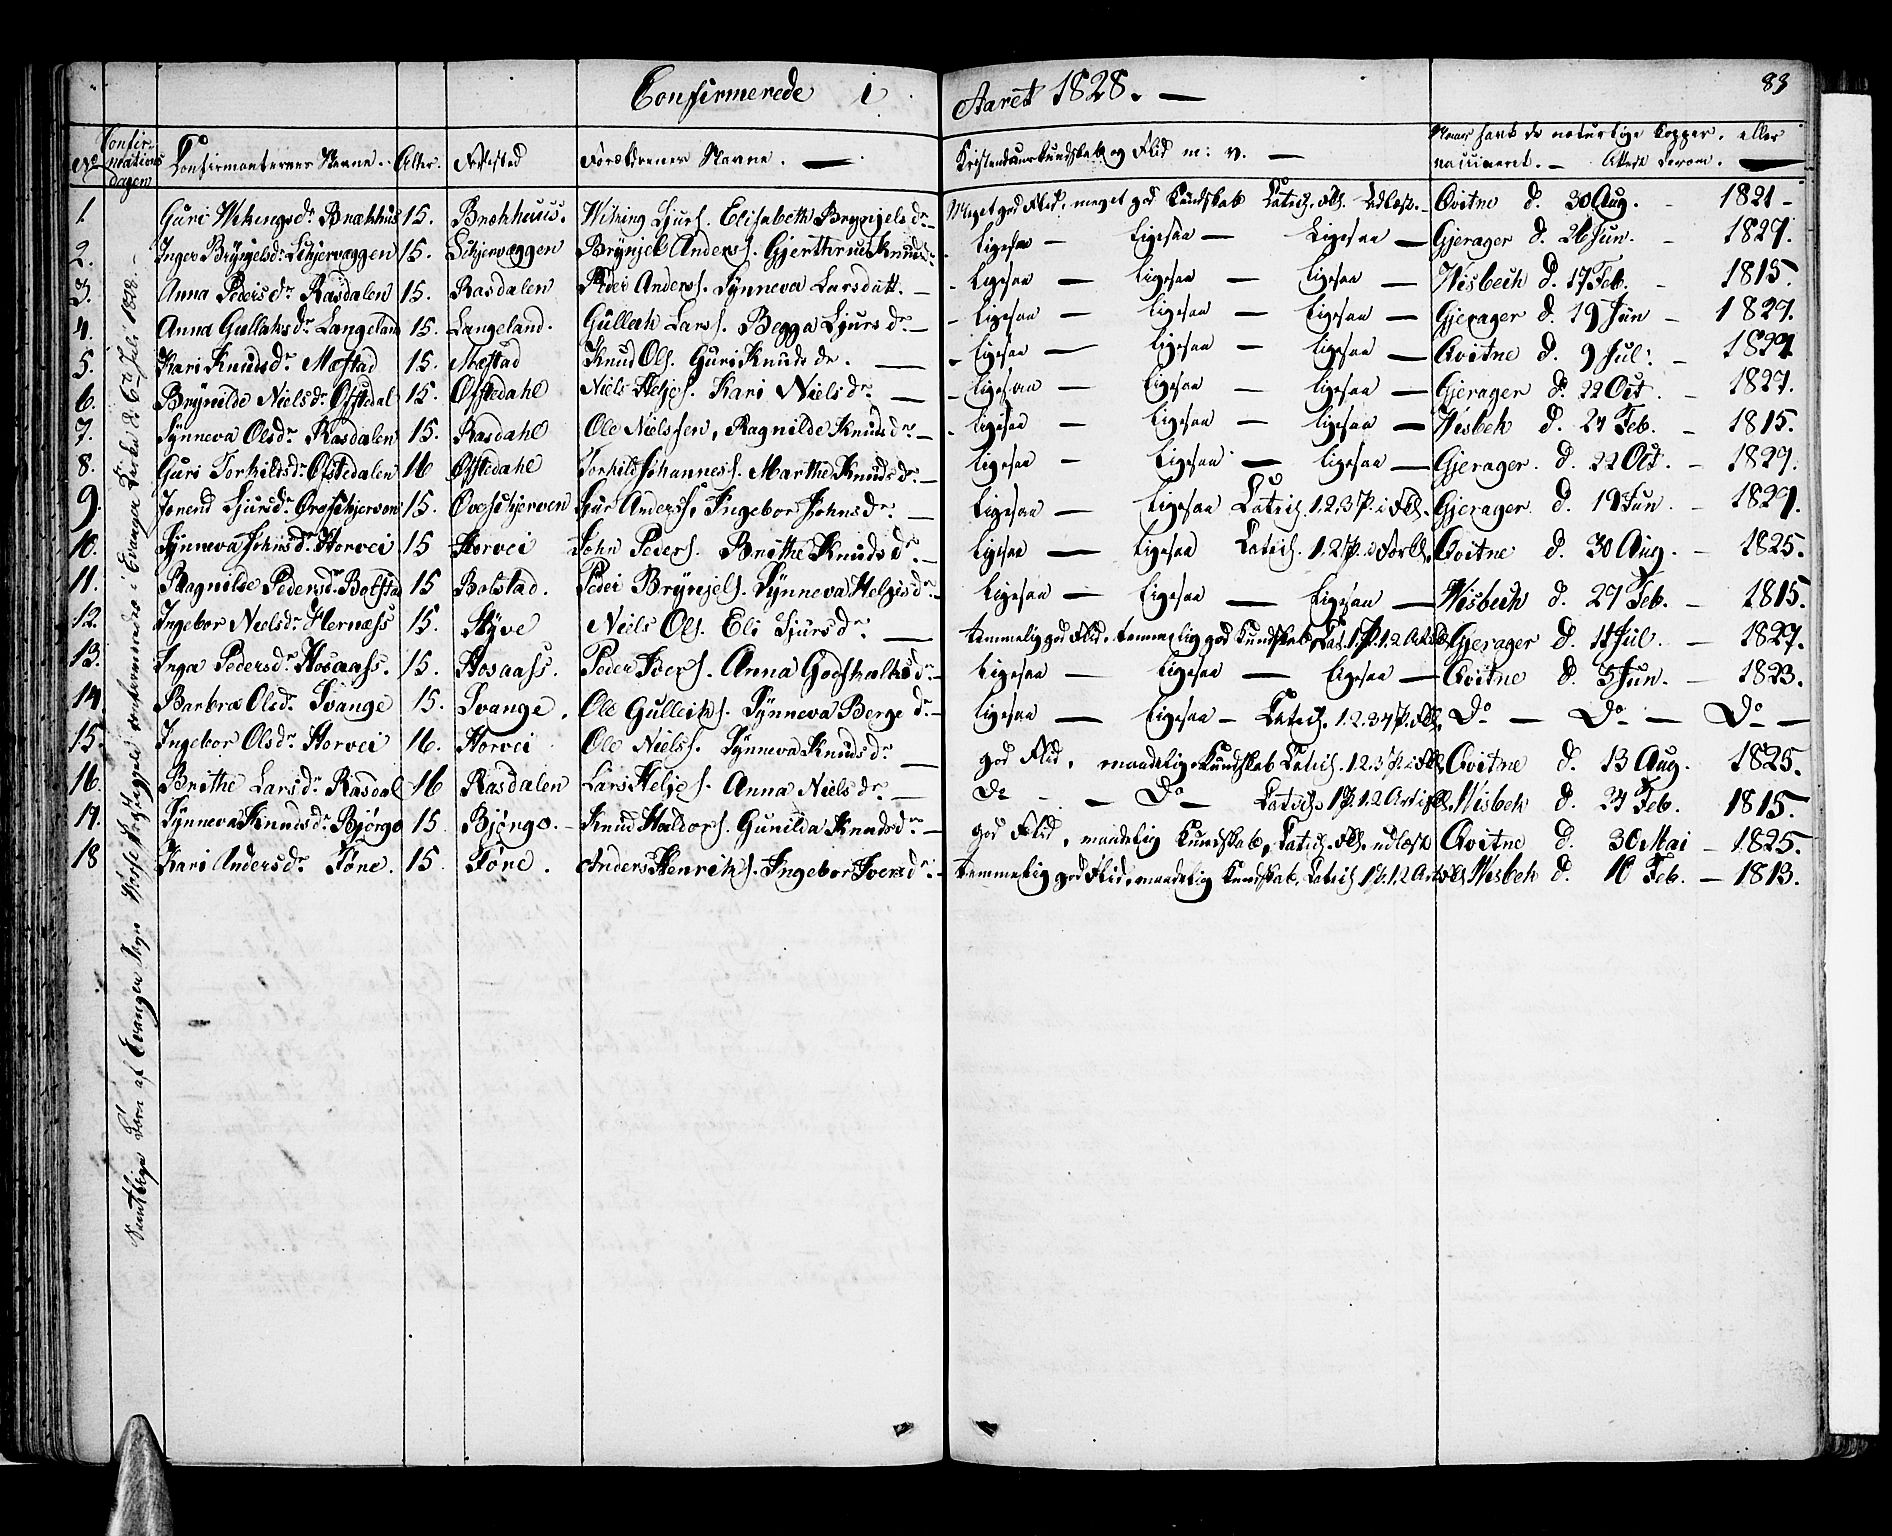 Confirmerede i Aaret 1828. —
83
No Confirmations dagen Confirmanternes Navne. Alter. Opfested Forældrenes Navne. — Kristendomskundskab og Flid m: v. — Naar havt de naturlige Kopper, eller vaccineret. — Attest derom. —
Samtlige Børn af Evanger Sogn Wosse Præstegjeld confirmerede i Evanger Kirke d: 6te Juli 1828. —
1. Guri Wikingsdr Brækhus 15. Brækhuus. Wiking Sjurs. Elisabeth Brynjelsdr — Meget god Flid, meget god Kundskab Catech. Fkl. Udlæst. — Qvitne d. 30 Aug. - 1821 -
2. Inger Brynjelsdr Schjervæggen 15. Schjervæggen Brynjel Anders. Gjertrud Knudsdr - ligesaa — ligesaa — Ligesaa — Gjerager d. 26 Jun. - 1827.
3. Anna Pedersdr Rasdalen 15. Rasdalen Peder Anders. Synneva Larsdatt. — - ligesaa — ligesaa — ligesaa — Nisbech d. 17 Feb. - 1815.
4. Anna Gullaksdr Langeland 15. Langeland. Gullak Lars. Begga Sjursdr — - ligesaa — ligesaa — ligesaa — Gjerager d. 19 Jun - 1827.
5. Kari Knudsdr Mæstad 15. Mæstad Knud Ols. Guri Knudsdr. — - ligesaa — ligesaa — ligesaa — Qvitne d. 9 Jul: - 1827
6. Brynilde Nielsdr Øfstedal 15. Øfstedahl Niels Heljes. Kari Nielsdr — - ligesaa — ligesaa — ligesaa — Gjerager d. 22 Oct. - 1827.
7. Synneva Olsdr Rasdalen 15. Rasdahl Ole Nielssen, Ragnilde Knudsdr — - ligesaa — ligesaa — ligesaa — Nisbek d. 27 Feb. - 1815.
8. Guri Torkildsdr Øfstedalen 16 Øfstedahl Torkild Johannes. Marthe Knudsdr. — ligesaa — ligesaa — ligesaa — Gjerager. d. 22 Oct. - 1827.
9. Sjursdr 15. Sjur Anders. Ingebor Johnsdr. — ligesaa — ligesaa Catech. 1.2.3 P. i Fkl. Gjerager d. 19 Jun - 1827.
10. Synneva Johnsdr Horvei 15 Horvei John Peders. Brithe Knudsdr — ligesaa — ligesaa Catech. 1.2 P. i Forkl. Qvitne d. 30 Aug. - 1825.
11. Ragnilde Pedersdr. Bolstad 15 Bolstad. Peder Brynjels. Synneva Helgesdr — ligesaa — ligesaa — ligesaa — Nisbech d. 27 Feb. - 1815.
12. Ingebor Nielsdr Hernæss 15. Styve Neils Ols. Eli Sjursdr — temmelig god Flid, temmelig god Kundskab, Cat. 1 P. 1.2 Art. Gjerager d. 11 Jul. - 1827.
13. Inga Pedersdr Hosaass. 15. Hosaass. Peder Ivers. Anna Godskalksdr — ligesaa — ligesaa — ligesaa — Qvitne d. 5 Jun. - 1823.
14. Barbra Olsdr Tvange 15. Tvange. Ole Gulleiks. Synneva Bergedr — ligesaa — ligesaa — Catech. 1.2.3 P. i Fkl. Do — Do — Do —
15. Ingebor Olsdr Horvei 16. Horvei Ole Niels. Synneva Knudsdr — god Flid, maadelig Kundskab Catech. 1.2.3 P. i Fkl. Qvitne d. 13 Aug. - 1825.
16. Brithe Larsdr Rasdal 16 Rasdalen Lars Heljes. Anna Nielsdr — Do - — Do — Catech. 1 P. 1.2 Art. i Fkl. Nisbek d. 27 Feb. 1815.
17. Synneva Knudsdr Bjørgo 15 Bjørgo. - Knud Haldors. Gunilda Knudsdr — god Flid, maadelig Kundskab, Catech. Fkl. udlæst Qvitne d. 30 Mai — 1825.
18 Kari Andersdr Tøne. 15. Tøne. Anders Henriks. Ingebor Iversdr. — temmelig god Flid, maadelig Kundskab, Catech. 1 P. 1.2 Art. i Fkl. Nisbek d. 16 Feb. — 1813.